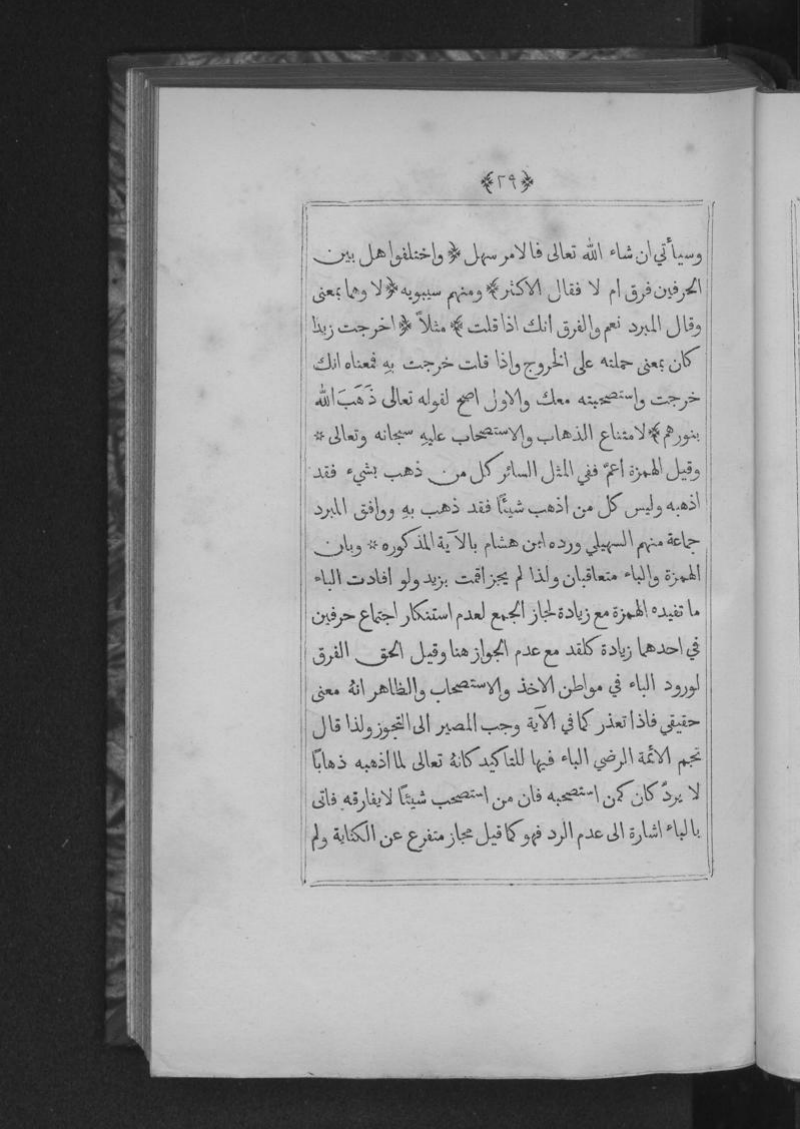 ﴿٢٩﴾
وسيأتي ان شاء الله تعالى فالامر سهل ﴿ واختلفوا هل بين
الحرفين فرق ام لا فقال الاكثر﴾ ومنهم سيبويه ﴿لا وهما بمعنى
وقال المبرد نعم والفرق انك اذا قلت ﴾ مثلاً ﴿ اخرجت زيدا
كان بمعنى حملته على الخروج واذا قلت خرجت بهِ فمعناه انك
خرجت واستصحبته معك والاول اصح لقوله تعالى ذَهَبَ الله
بنورهم﴾ لامتناع الذهاب والاستصحاب عليهِ سبحانه وتعالى *
وقيل الهمزة اعمّ ففي المثل السائر كل من ذهب بشيء فقد
اذهبه وليس كل من اذهب شيئًا فقد ذهب بهِ ووافق المبرد
جماعة منهم السهيلي ورده ابن هشام بالآية المذكوره * وبان
الهمزة والباء متعاقبان ولذا لم يجز اقمت بزيد ولو افادت الباء
ما تفيده الهمزة مع زيادة لجاز الجمع لعدم استنكار اجتماع حرفين
في احدهما زيادة كلقد مع عدم الجواز هنا وقيل الحق الفرق
لورود الباء في مواطن الاخذ والاستصحاب والظاهر انهُ معنى
حقيقي فاذا تعذر كما في الآية وجب المصير الى التجوز ولذا قال
نجم الائمة الرضي الباء فيها للتاكيد كانهُ تعالى لما اذهبه ذهابًا
لا يردّ كان كمن استصحبه فان من استصحب شيئًا لا يفارقه فاتى
بالباء اشارة الى عدم الرد فهو كما قيل مجاز متفرع عن الكناية ولم